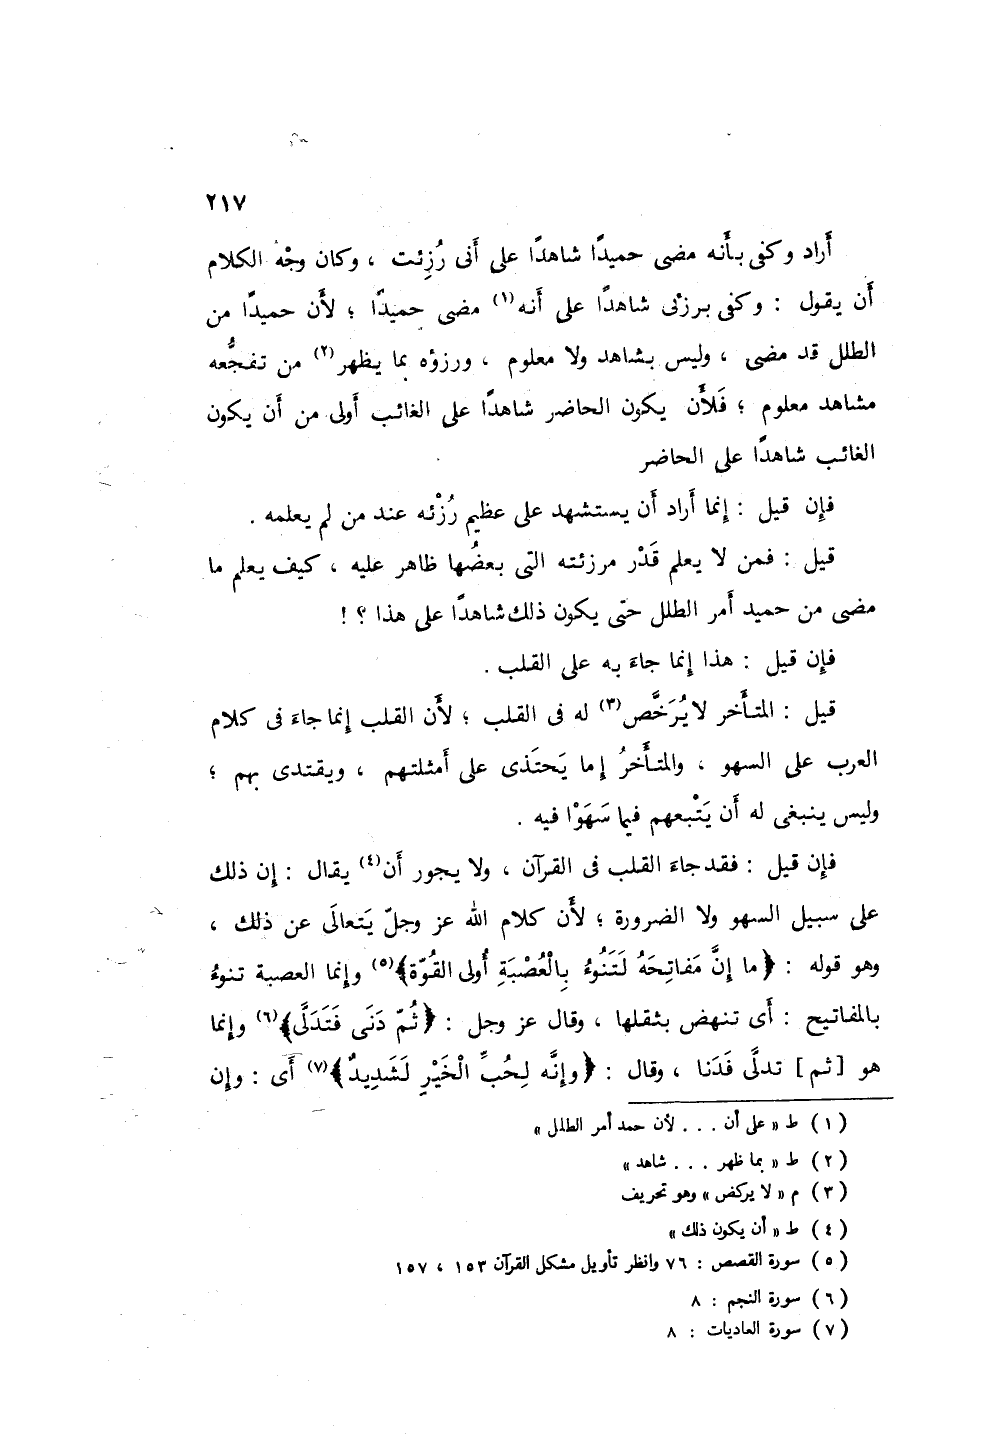 ٢١٧
أَراد وكفى بأَنه مضى حميدًا شاهدًا على أَنى رُزِئت ، وكان وجْهُ الكلام
أَن يقول : وكفى برزئى شاهدًا على أَنه(١) مضى حميدًا ؛ لأَن حميدًا من
الطلل قد مضى ، وليس بشاهد ولا معلوم ، ورزؤه بما يظهر(٢) من تفجُّعه
مشاهد معلوم ؛ فَلأَن يكون الحاضر شاهدًا على الغائب أَولى من أَن يكون
الغائب شاهدًا على الحاضر
فإِن قيل : إِنما أَراد أَن يستشهد على عظيم رُزْئه عند من لم يعلمه .
قيل : فمن لا يعلم قَدْر مرزئته التى بعضُها ظاهر عليه ، كيف يعلم ما
مضى من حميد أَمر الطلل حتى يكون ذلك شاهدًا على هذا ؟ !
فإِن قيل : هذا إِنما جاءَ به على القلب .
قيل : المتأَخر لا يُرَخَّص(٣) له فى القلب ؛ لأَن القلب إِنما جاءَ فى كلام
العرب على السهو ، والمتأَخرُ إِما يَحتَذى على أَمثلتهم ، ويقتدى بهم ؛
وليس ينبغى له أَن يَتْبعهم فيما سَهَوْا فيه .
فإِن قيل : فقد جاءَ القلب فى القرآن ، ولا يجور أَن(٤) يقال : إِن ذلك
على سبيل السهو ولا الضرورة ؛ لأَن كلام الله عز وجلّ يَتعالَى عن ذلك ،
وهو قوله : ﴿ ما إِنَّ مَفاتِحَهُ لَتَنُوءُ بِالْعُصْبَةِ أُولى القُوّة﴾(٥) وإِنما العصبة تنوءُ
بالمفاتيح : أَى تنهض بثقلها ، وقال عز وجل : ﴿ ثُمّ دَنَى فَتَدَلَّى﴾(٦) وإِنما
هو [ ثم ] تدلَّى فَدَنا ، وقال : ﴿ وإِنَّه لِحُبِّ الْخَيْرِ لَشَدِيدٌ﴾(٧) أَى : وإِن
(١) ط « على أن . . . لأن حمد أمر الطلل »
(٢) ط « بما ظهر . . . شاهد »
(٣) م « لا يركض » وهو تحريف
(٤) ط « أن يكون ذلك »
(٥) سورة القصص : ٧٦ وانظر تأويل مشكل القرآن ١٥٣ ، ١٥٧
(٦) سورة النجم : ٨
(٧) سورة العاديات : ٨